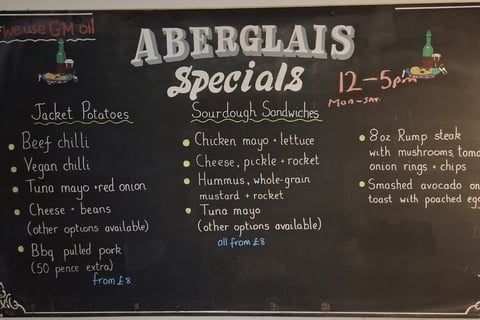 we use GM oil
ABERGLAIS
Specials
12-5pm
Mon-Sat.
Jacket Potatoes
Beef chilli
Vegan chilli
Tuna mayo + red onion
Cheese + beans
(other options available)
Bbq pulled pork
(50 pence extra)
from £8
Sourdough Sandwiches
Chicken mayo + lettuce
Cheese, pickle + rocket
Hummus, whole-grain
mustard + rocket
Tuna mayo
(other options available)
all from £8
8oz Rump steak
with mushrooms,
onion rings + chips
Smashed avocado on
toast with poached